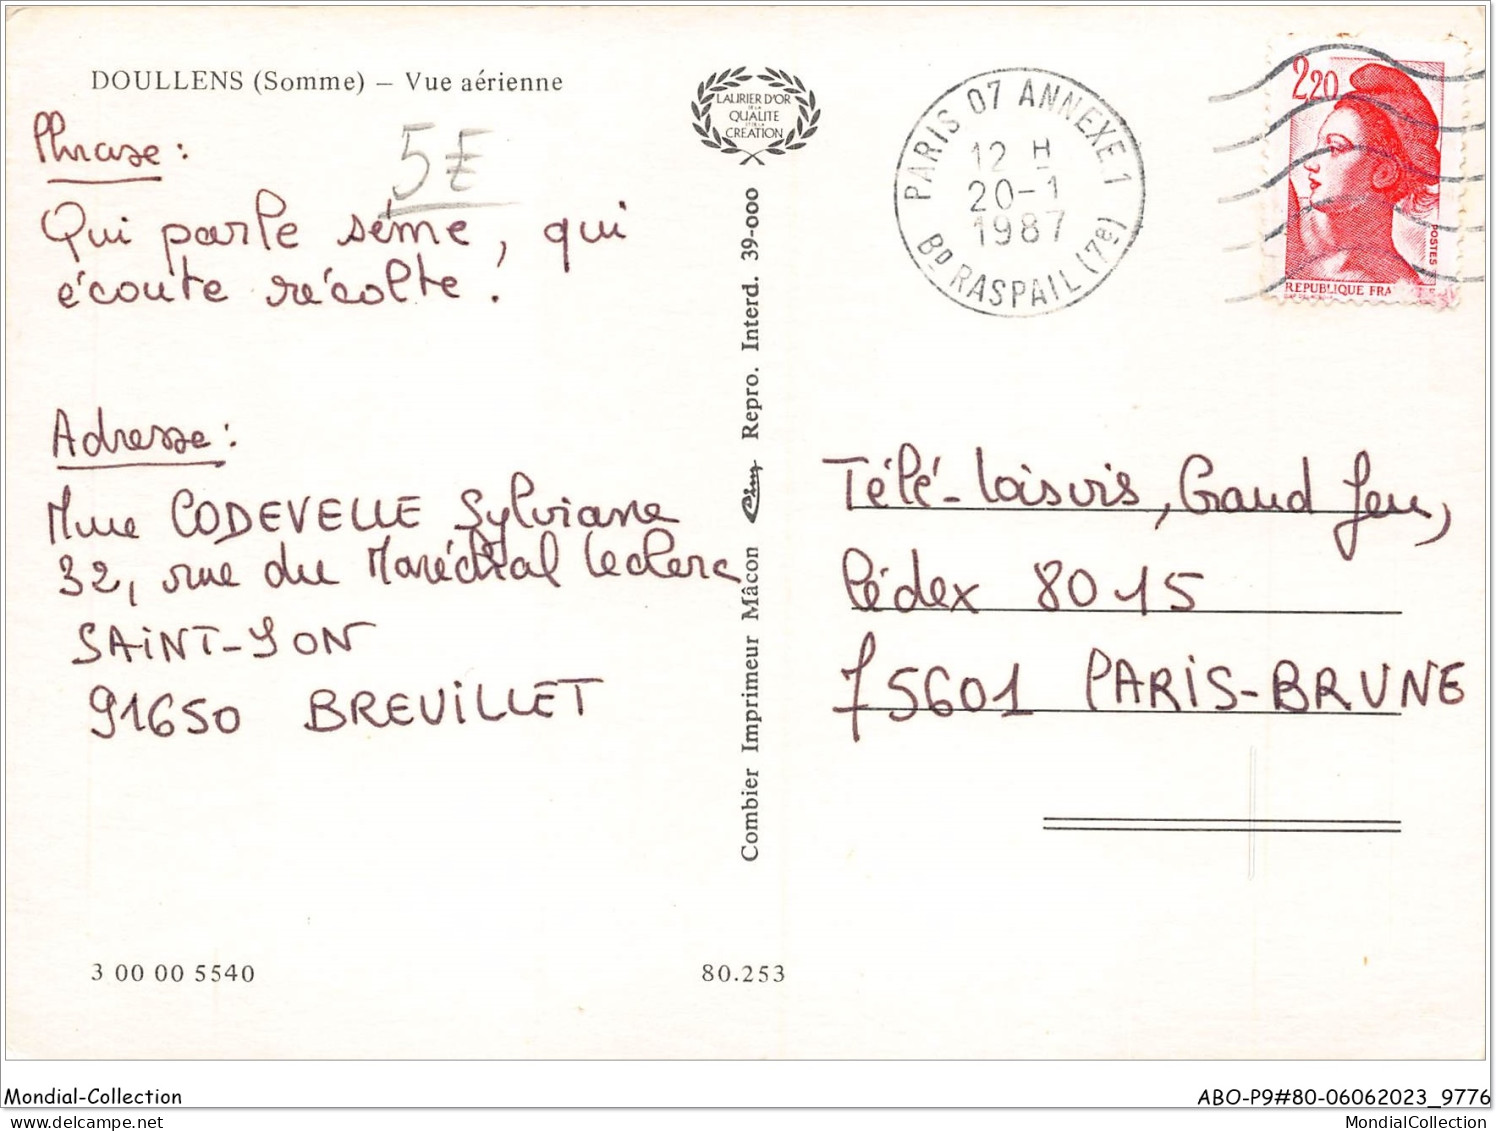 DOULLENS (Somme) – Vue aérienne
Phrase :
5€
Qui parle sème, qui
écoute récolte.
Adresse :
Mme CODEVELLE Sylviane
32, rue du Maréchal Leclerc
SAINT-YON
91650 BREUILLET
3 00 00 5540
80.253
LAURIER D'OR
DE LA
QUALITE
ET DE LA
CREATION
Combier Imprimeur Mâcon Cim Repro. Interd. 39-000
PARIS 07 ANNEXE 1
12 H
20-1
1987
BD RASPAIL (7e)
2,20
POSTES
REPUBLIQUE FRA
Télé-Loisirs, Grand Jeu,
Cédex 8015
75601 PARIS-BRUNE
Mondial-Collection
ABO-P9#80-06062023_9776
MondialCollection.com
MondialCollection